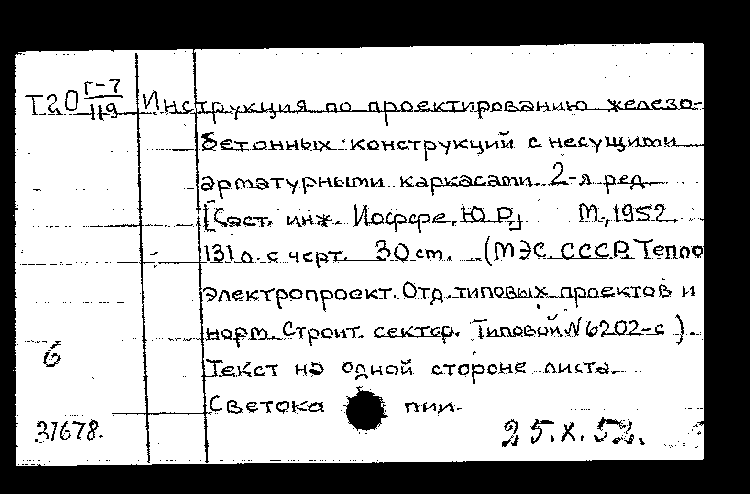 Т20 Г-7/119 Инструкция по проектированию железо-
бетонных конструкций с несущими
арматурными каркасами. 2-я ред.
[Сост. инж. Иосффе, Ю.Р.] М., 1952.
131 л. с черт. 30 ст. (МЭС. СССР. Тепло
электропроект. Отд. типовых проектов и
норм. Строит. сектор. Типовой N 6202-с).
6
Текст на одной стороне листа.
Светока пии.
37678.
25.X.52.